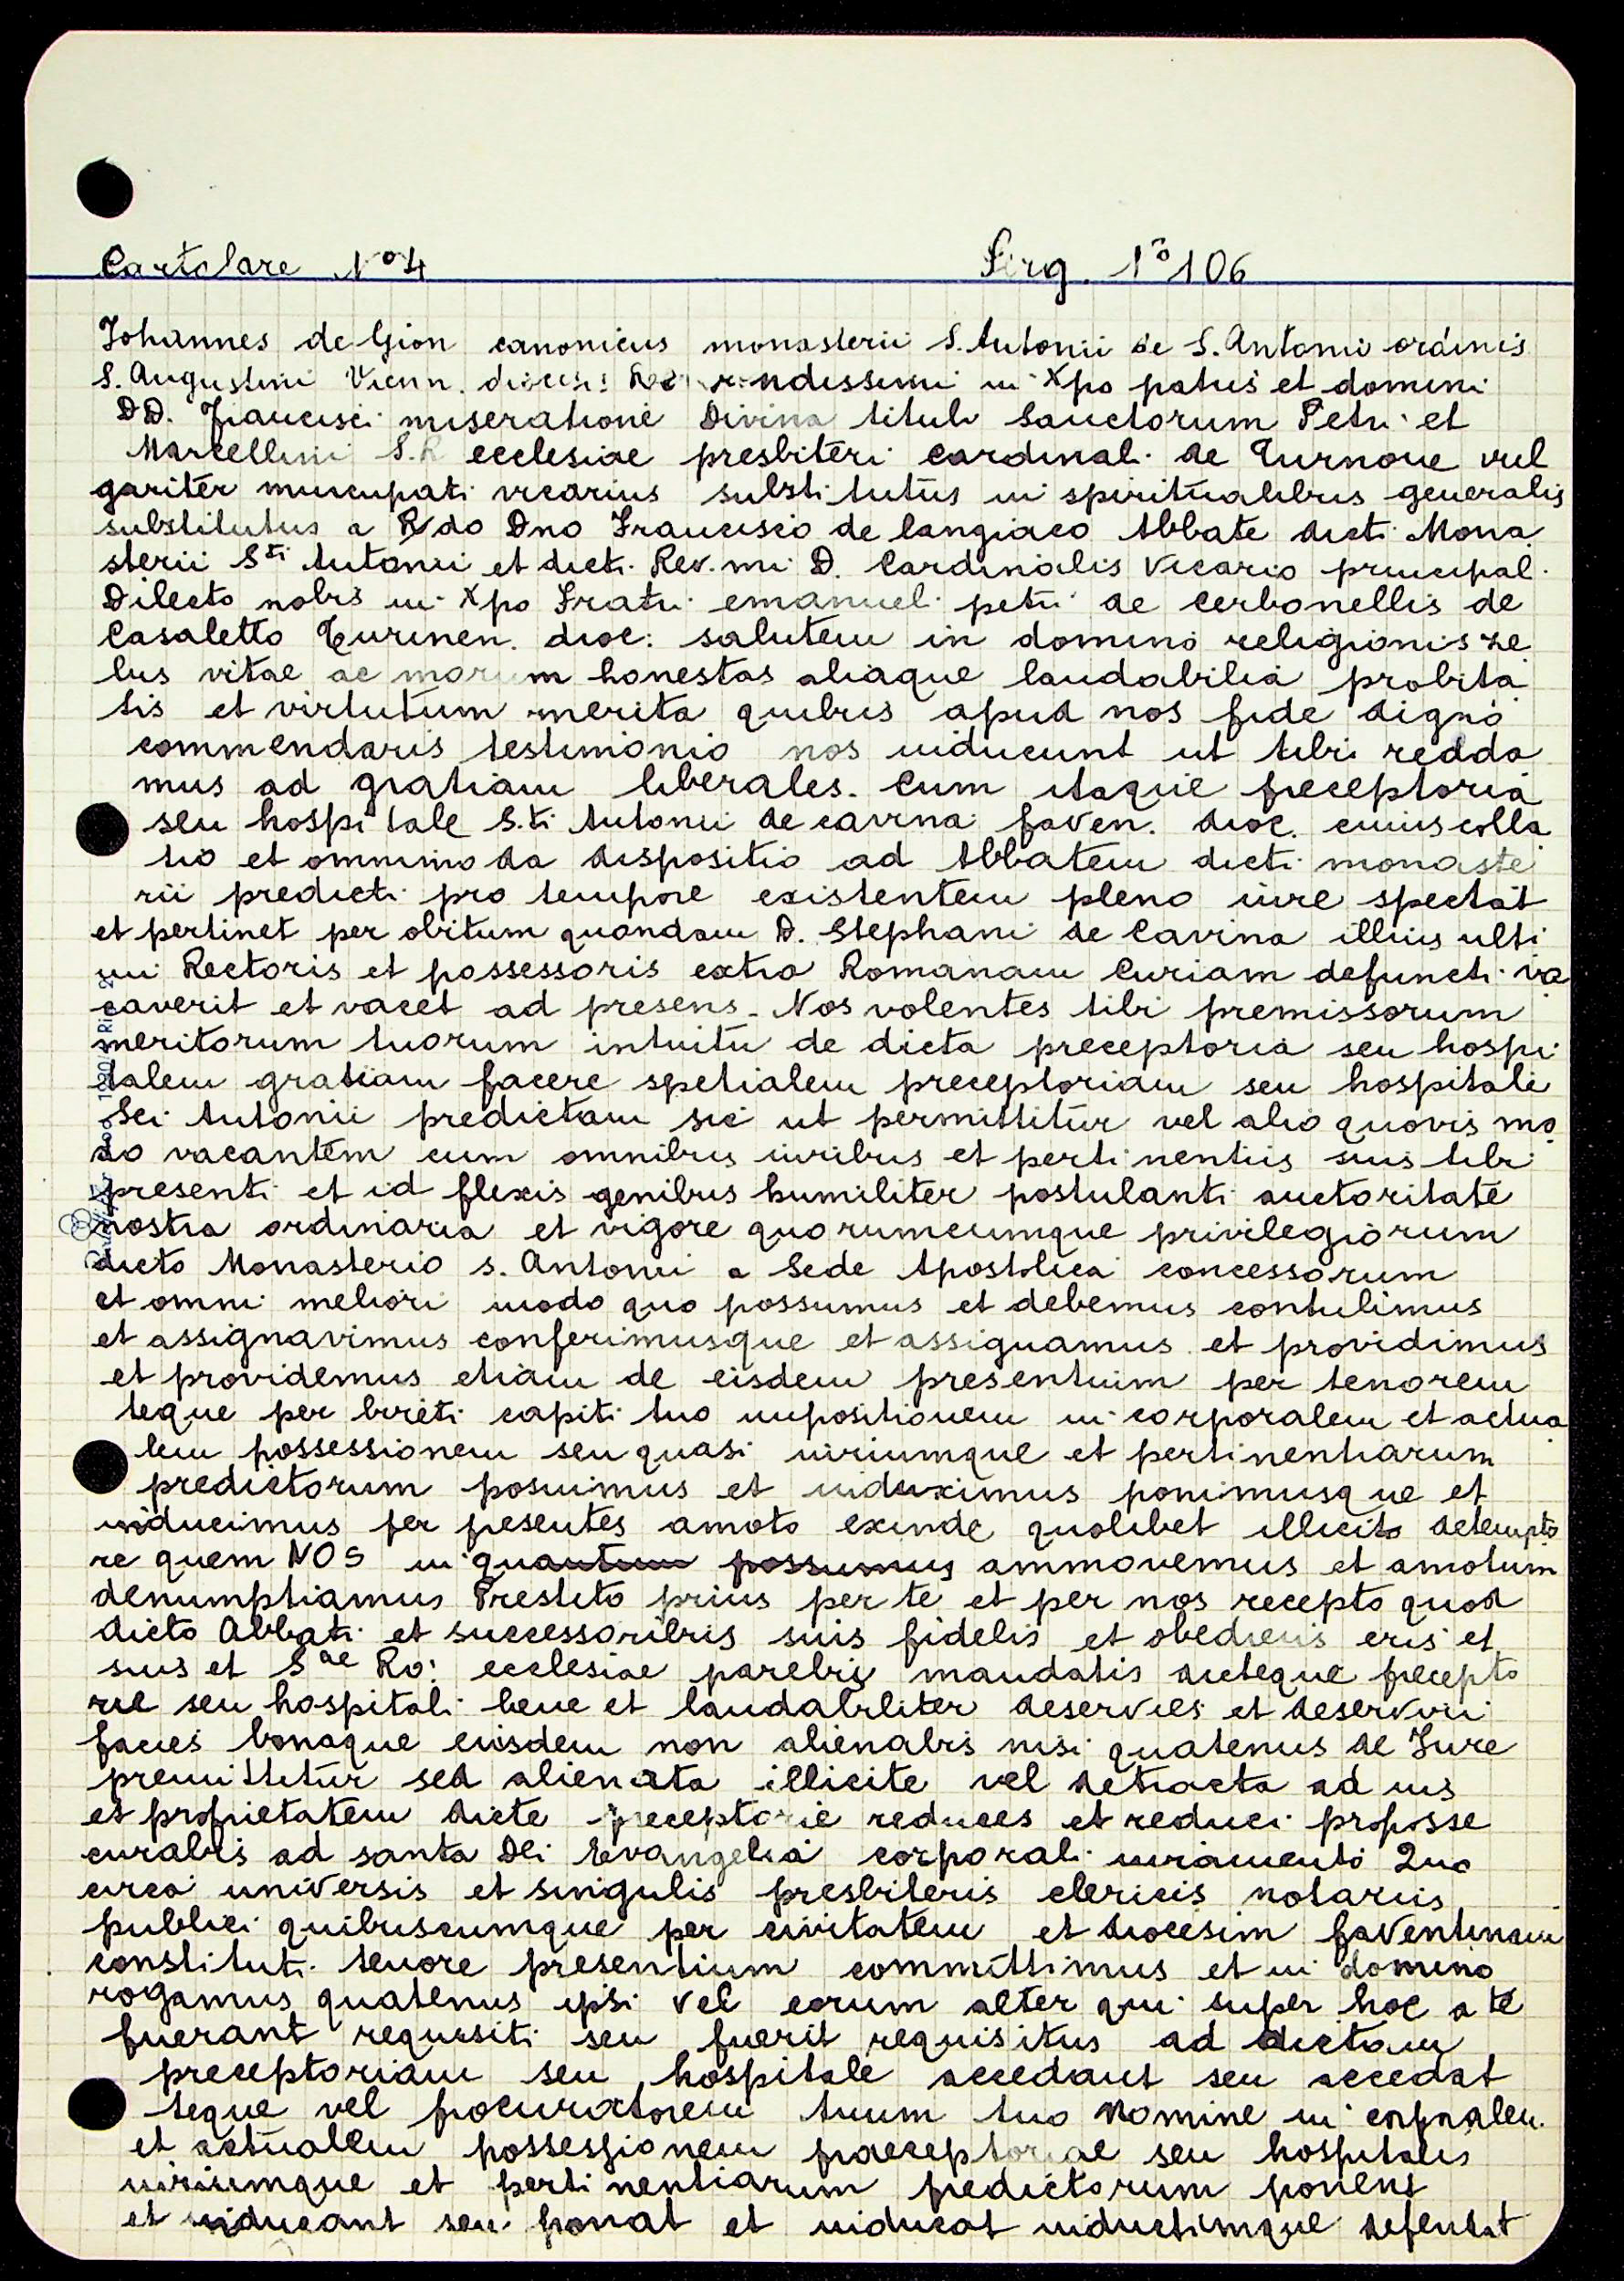 Cartolare N° 4 Perg. N° 106
Johannes de Gion canonicus monasterii S. Antonii de S. Antonii ordinis
S. Augustini Vienn. diocesis Reverendissimi in Xpo patris et domini
DD. Francisci miseratione Divina tituli Sanctorum Petri et
Marcellini S.R ecclesiae presbiteri Cardinal. de Turnone vul
gariter nuncupati vicarius substitutus in spiritualibus generalis
substitutus a Rdo Dno Francisco de langiaco Abbate dicti Mona
sterii Sti Antonii et dicti Rev.mi D. Cardinalis Vicario principal.
Dilecto nobis in Xpo Fratri emanuel petri de Cerbonellis de
Casaletto Turinen. dioc: salutem in domino religionis ze
lus vitae ac morum honestas aliaque laudabilia probita
tis et virtutum merita quibus apud nos fide digno
commendaris testimonio nos inducunt ut tibi redda
mus ad gratiam liberales. Cum itaque preceptoria
seu hospitale S.ti Antonii de cavina faven. dioc. cuius colla
tio et omnimoda dispositio ad Abbatem dicti monaste
rii predicti pro tempore existentem pleno iure spectat
et pertinet per obitum quondam D. Stephani de Cavina illius ulti
mi Rectoris et possessoris extra Romanam Curiam defuncti va
caverit et vacet ad presens. Nos volentes tibi premissorum
meritorum tuorum intuitu de dicta preceptoria seu hospi
talem gratiam facere spetialem preceptoriam seu hospitale
Sci Antonii predictam sic ut permittitur vel alio quovis mo
do vacantem cum omnibus iuribus et pertinentiis suis tibi
presenti et id flexis genibus humiliter postulanti auctoritate
nostra ordinaria et vigore quorumcumque privilegiorum
dicto Monasterio s. Antonii a Sede Apostolica concessorum
et omni meliori modo quo possumus et debemus contulimus
et assignavimus conferimusque et assignamus et providimus
et providemus etiam de eisdem presentium per tenorem
teque per bireti capiti tuo impositionem in corporalem et actua
lem possessionem seu quasi iuriumque et pertinentiarum
predictorum posuimus et induximus ponimusque et
inducimus per presentes amoto exinde quolibet illicito detempto
re quem NOS in quantum possumus ammovemus et amotum
denumptiamus Prestito prius per te et per nos recepto quod
dicto Abbati et successoribus suis fidelis et obediens eris et
suis et Sae Ro: ecclesiae parebis mandatis dicteque precepto
rie seu hospitali bene et laudabiliter deservies et deserviri
facies bonaque eiusdem non alienabis nisi quatenus de Jure
premittitur sed alienata illicite vel detracta ad ius
et proprietatem dicte preceptorie reduces et reduci proposse
curabis ad santa Dei Evangelia corporali iuramento Quo
circa universis et singulis presbiteris clericis notariis
publici quibuscumque per civitatem et diocesim faventinam
constituti tenore presentium committimus et in domino
rogamus quatenus ipsi vel eorum alter qui super hoc a te
fuerant requisiti seu fuerit requisitus ad dictam
preceptoriam seu hospitale accedant seu accedat
teque vel procuratorem tuum tuo nomine in corporalem
et actualem possessionem praeceptoriae seu hospitalis
iuriumque et pertinentiarum predictorum ponent
et inducant seu ponat et inducat inductumque defendat